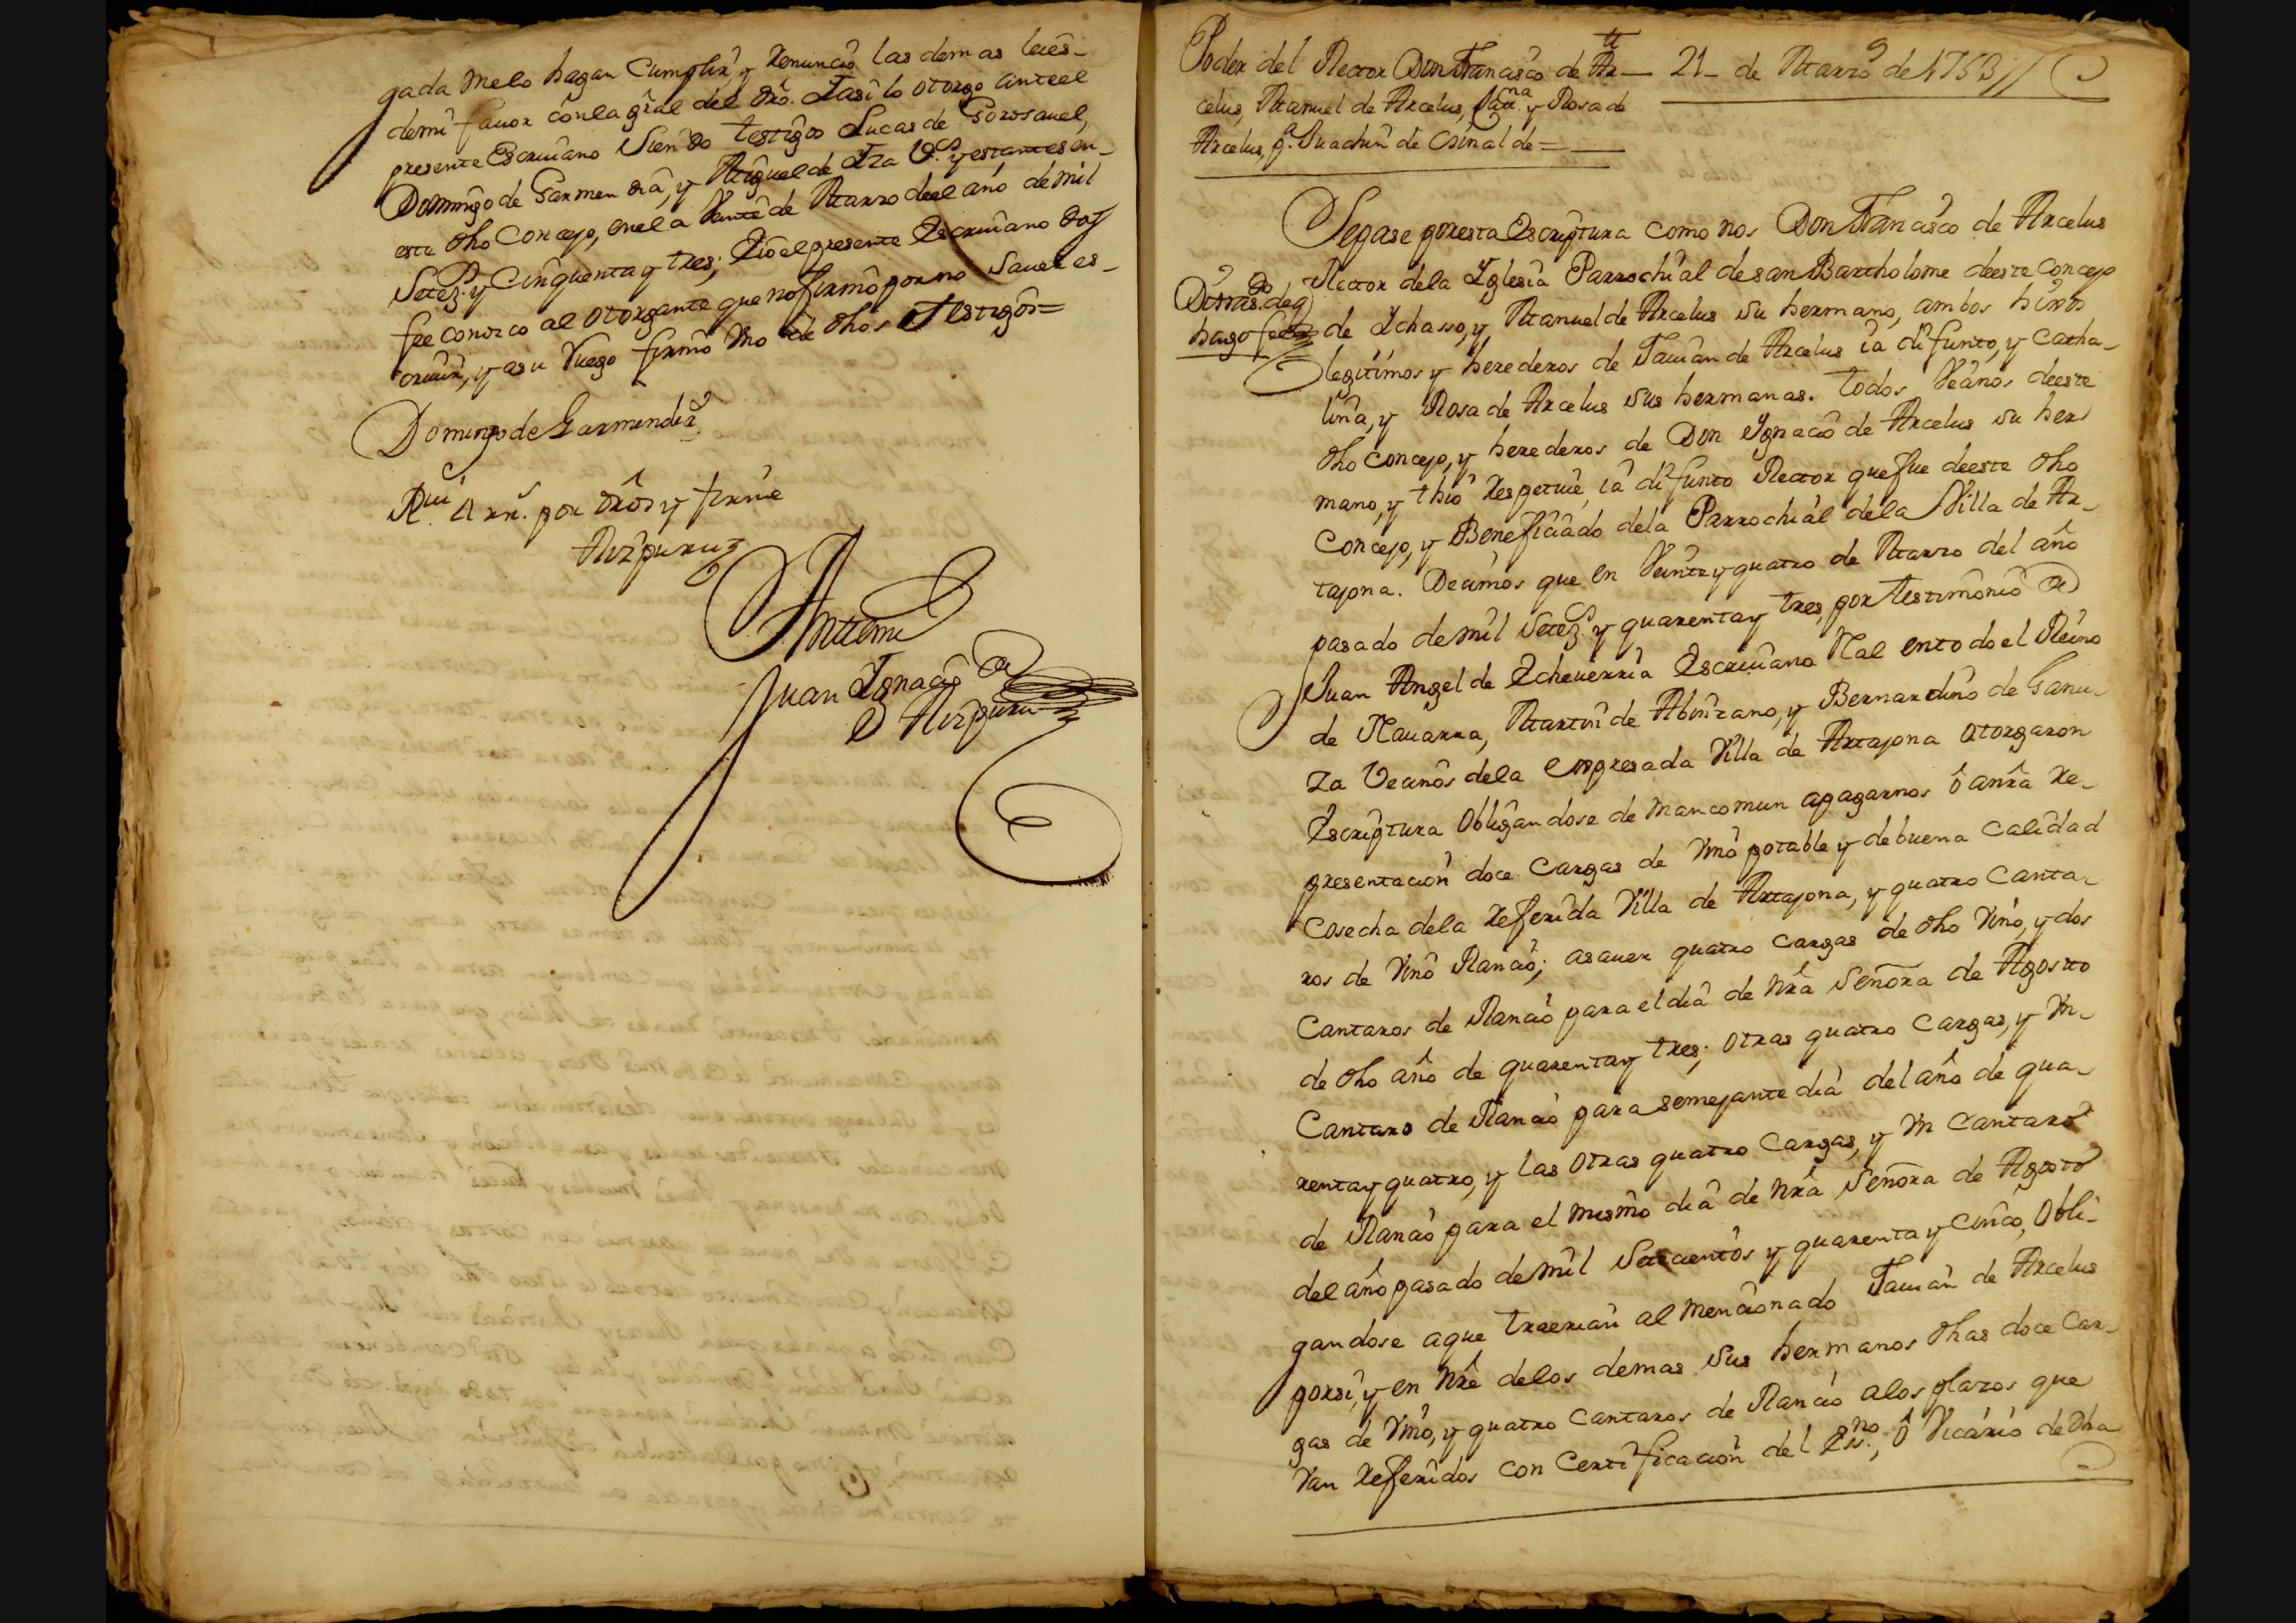 gada melo hagan Cumplir, y Renunció las demas leies
demi fauor conla gral del dro. I asi lo otorgo anteel
presente Escriuano siendo testigos Lucas de Gorosauel,
Domingo de Garmendia, y Miguel de Iza Vs. y estantes en
este dho Concejo, enel a Veinte de Marzo deel año de mil
Setez.s y Cinquenta y tres; Eio el presente Escriuano doy
fee conozco al otorgante que no firmó por no sauer es-
criuir, y asu Ruego firmó Vno de dhos testigos=
Domingo de Garmendia
Rui 4 rr.s por dros y firmé
Aizpuru
Antemi
Juan Ignacio de
Aizpuru
Poder del Rector Don Franasco de Ar- 21- de Marzo de 1753//
celus, Manuel de Arcelus, Catt.na y Rosa de
Arcelus, p.a Juachin de Osinalde=
Sepase poresta Escriptura como nos Don Francisco de Arcelus
Rector dela Iglesia Parrochial desan Bartholome deeste Concejo
hago fee
de Ichasso, y Manuel de Arcelus su hermano, ambos hijos
legitimos y herederos de Jauian de Arcelus ia difunto, y Catha-
lina, y Rosa de Arcelus sus hermanas. todos Vecinos deeste
dho Concejo, y herederos de Don Ygnacio de Arcelus su her
mano, y thio respetiue, ia difunto Rector que fue deeste dho
Concejo, y Beneficiado dela Parrochial dela Villa de Ar-
tajona. Decimos que en Veinte y quatro de Marzo del año
pasado de mil Setez.s y quarenta y tres, por testimonio de
Juan Angel de Echeuerria Escriuano Real en todo el Reino
de Nauarra, Martin de Abinzano, y Bernardino de Ganu-
za Vecinos dela expresada Villa de Artajona otorgaron
Escriptura obligandose de mancomun apagarnos ó anra re-
presentacion doce Cargas de Vino potable y de buena Calidad
Cosecha dela referida Villa de Artajona, y quatro Canta-
ros de Vino Rancio; asauer quatro Cargas de dho Vino, y dos
Cantaros de Rancio para el dia de Nra Señora de Agosto
de dho año de quarenta y tres; otras quatro Cargas, y Vn
Cantaro de Rancio para semejante dia del año de qua-
renta y quatro, y las otras quatro Cargas, y Vn Cantaro
de Rancio para el mismo dia de Nra Señora de Agosto
del año pasado de mil Setecientos y quarenta y Cinco, obli-
gandose aque traerian al mencionado Jauian de Arcelus
porsi, y en Nre delos demas sus hermanos dhas doce Car-
gas de Vino, y quatro Cantaros de Rancio alos plazos que
Van referidos con Certificacion del Essno, ó Vicario de dha